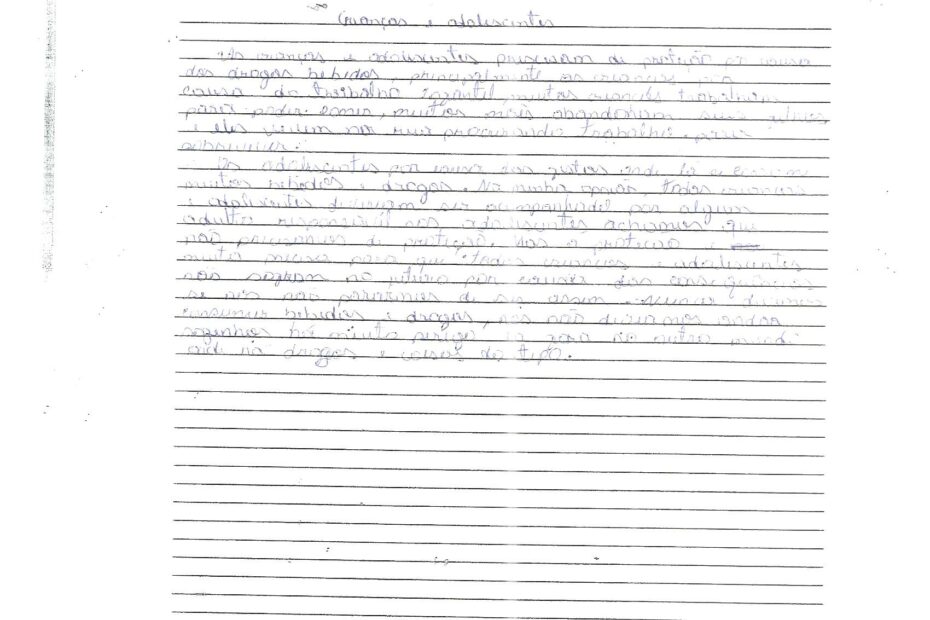 Crianças e adolescentes
As crianças e adolescentes precisam de proteção por causa
das drogas bebidas, principalmente as crianças por
causa do trabalho infantil, muitas crianças trabalham
para poder comer, muitos pais abandonam seus filhos
e eles vivem nas ruas procurando trabalho para
sobreviver.
Os adolescentes por causa das festas onde
muitas bebidas e drogas. Na minha opinião, todas crianças
e adolescentes deveriam ser acompanhados por algum
adulto responsável nos adolescentes achamos que
não precisamos de proteção. Mas a proteção é
muito para que todas crianças e adolescentes
não sofram no futuro por causa das consequências
se nós não pararmos de ser assim. Nunca devemos
consumir bebidas e drogas, nós não devemos andar
sozinhos há muito perigo no outro mundo
nã drogas e coisas do tipo.